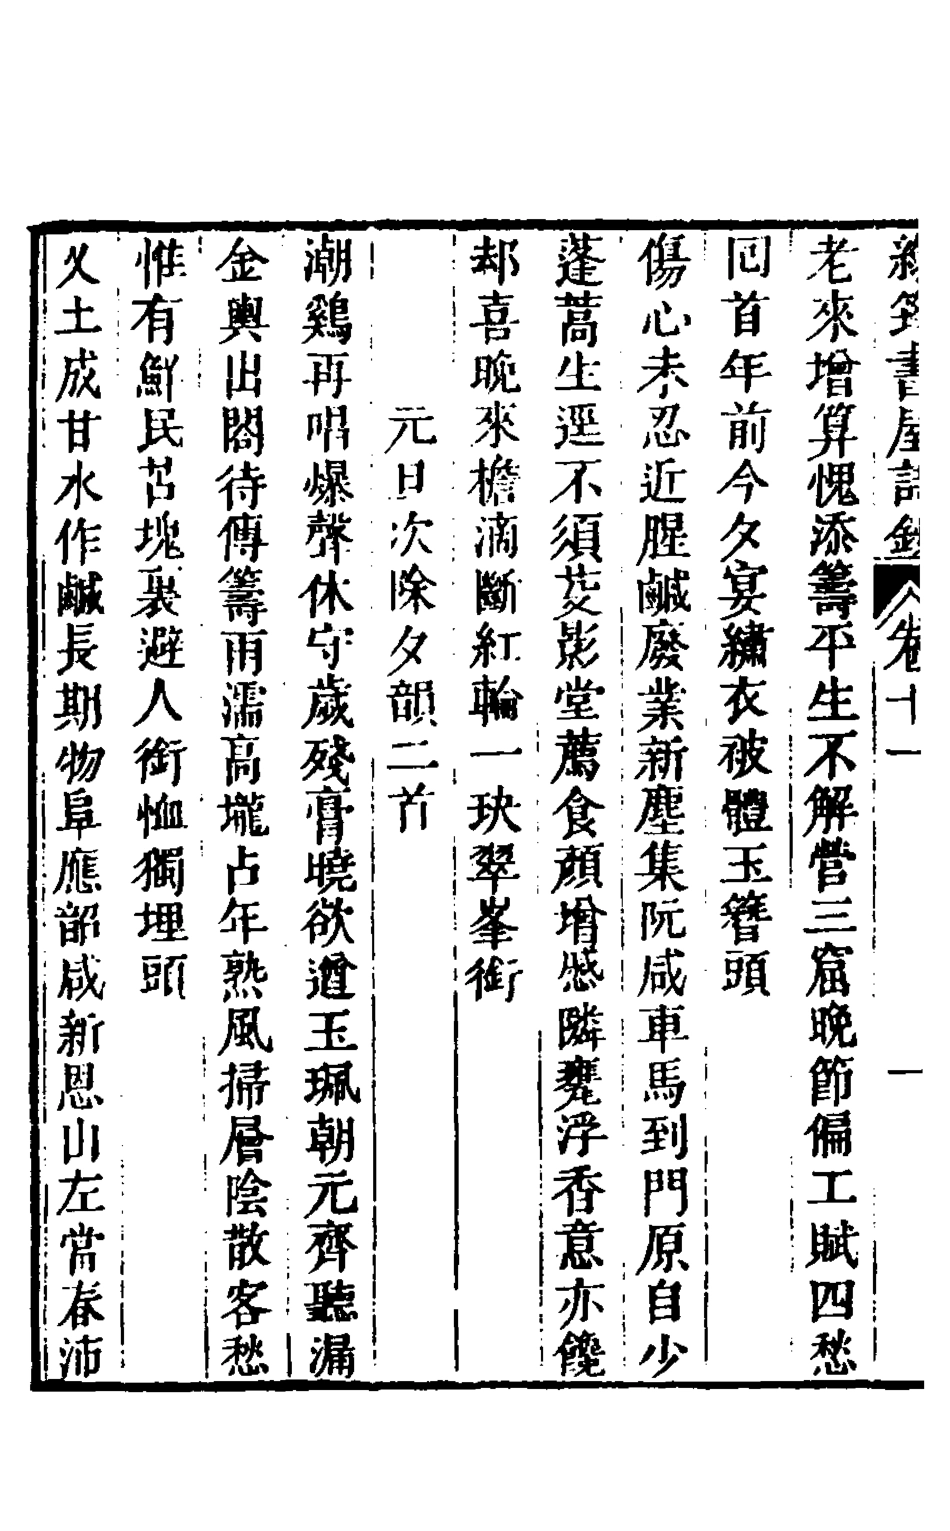 綠筠書屋詩鈔 卷十一 一
老來增算愧添籌平生不解營三窟晚節偏工賦四愁
回首年前今夕宴繡衣被體玉簪頭
傷心未忍近腥鹹廢業新塵集阮咸車馬到門原自少
蓬蒿生逕不須芟影堂薦食顏增慼隣甕浮香意亦饞
却喜晚來檐滴斷紅輪一玦翠峯銜
元旦次除夕韻二首
潮鷄再唱爆聲休守歲殘膏曉欲遒玉珮朝元齊聽漏
金輿出閤待傳籌雨濡高壠占年熟風掃層陰散客愁
惟有鮮民苫塊裏避人銜恤獨埋頭
久土成甘水作鹹長期物阜應韶咸新恩山左當春沛